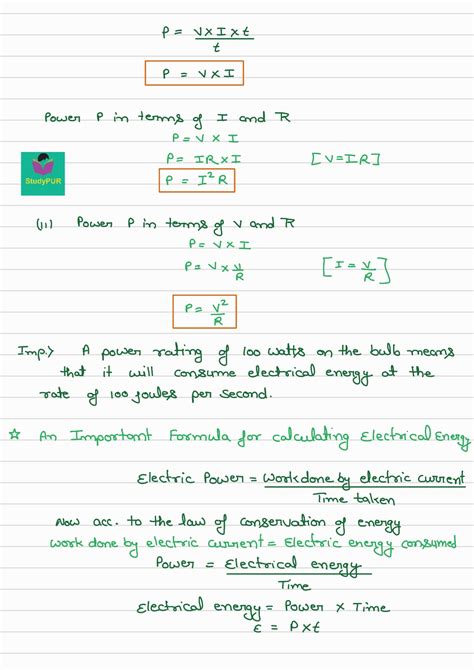 P = V×I×t
t
P = V×I
Power P in terms of I and R
P = V × I
P = IR×I [V=IR]
P = I²R
StudyPUR
(ii) Power P in terms of V and R
P = V × I
P = V × V/R [I = V/R]
P = V²/R
Imp.⟩ A power rating of 100 watts on the bulb means
that it will consume electrical energy at the
rate of 100 joules per second.
☆ An Important Formula for calculating Electrical Energy
Electric Power = Work done by electric current
Time taken
Now acc. to the law of conservation of energy
Work done by electric current = Electric energy consumed
Power = Electrical energy
Time
Electrical energy = Power × Time
E = P×t